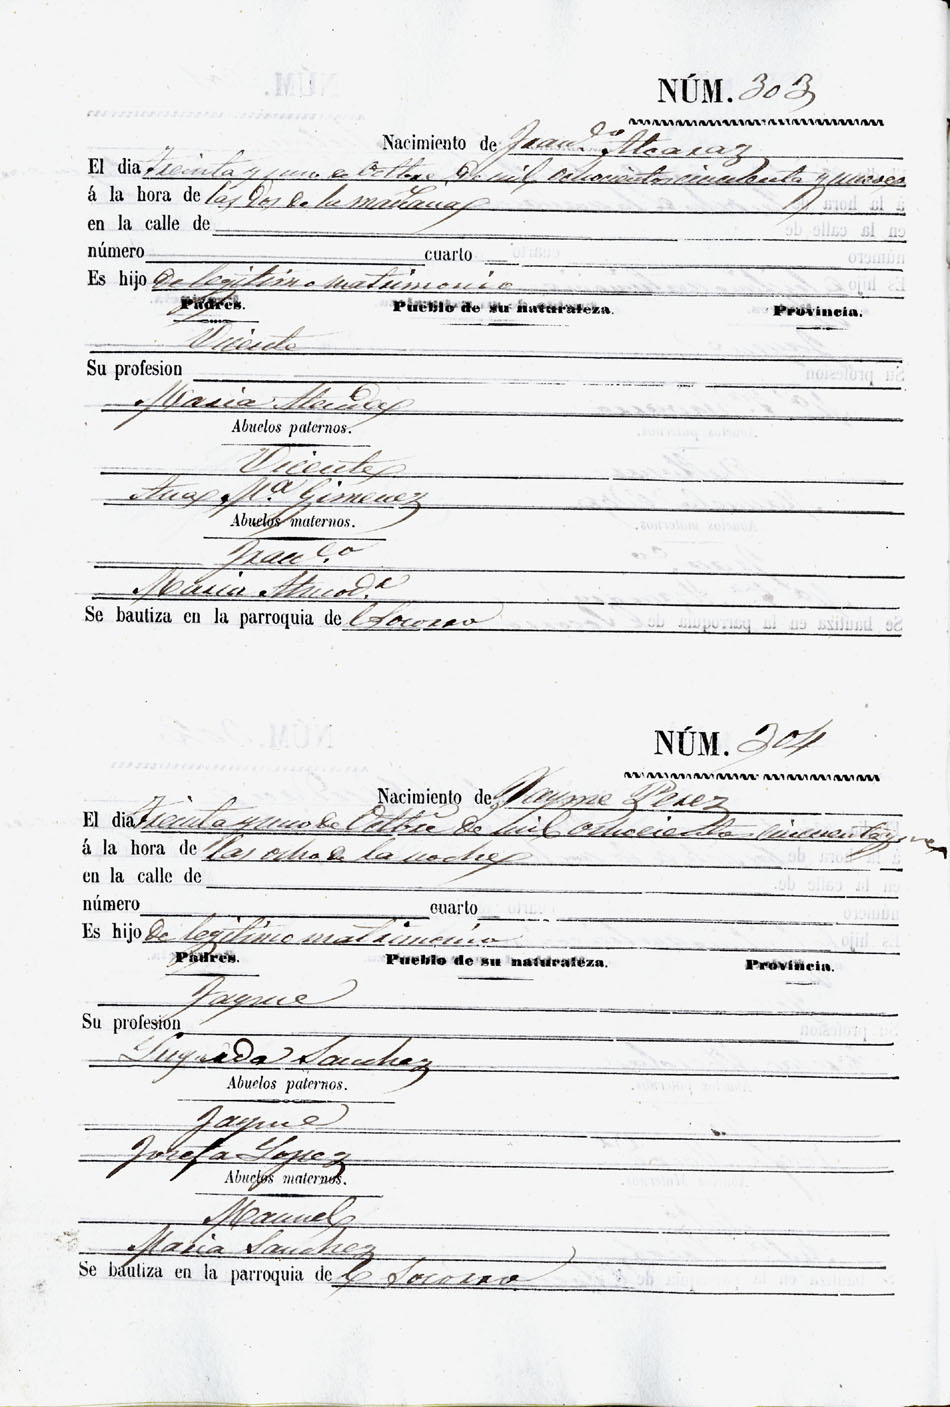 NÚM. 303
Nacimiento de Fran.do Alcaraz
El dia Treinta y uno de Octbre de mil ochocientos cincuenta y nueve
á la hora de las dos de la mañana
en la calle de
número cuarto
Es hijo de legitimo matrimonio
Padres. Pueblo de su naturaleza. Provincia.
Vicente
Su profesion
Maria
Abuelos paternos.
Vicente
Ana M.a Gimenez
Abuelos maternos.
Fran.co
Maria
Se bautiza en la parroquia de el Socorro
NÚM. 304
Nacimiento de Jayme Perez
El dia Treinta y uno de Octbre de mil ochocientos cincuenta y nueve
á la hora de las ocho de la noche
en la calle de
número cuarto
Es hijo de legitimo matrimonio
Padres. Pueblo de su naturaleza. Provincia.
Jayme
Su profesion
Sanchez
Abuelos paternos.
Jayme
Josefa Lopez
Abuelos maternos.
Manuel
Maria Sanchez
Se bautiza en la parroquia de el Socorro